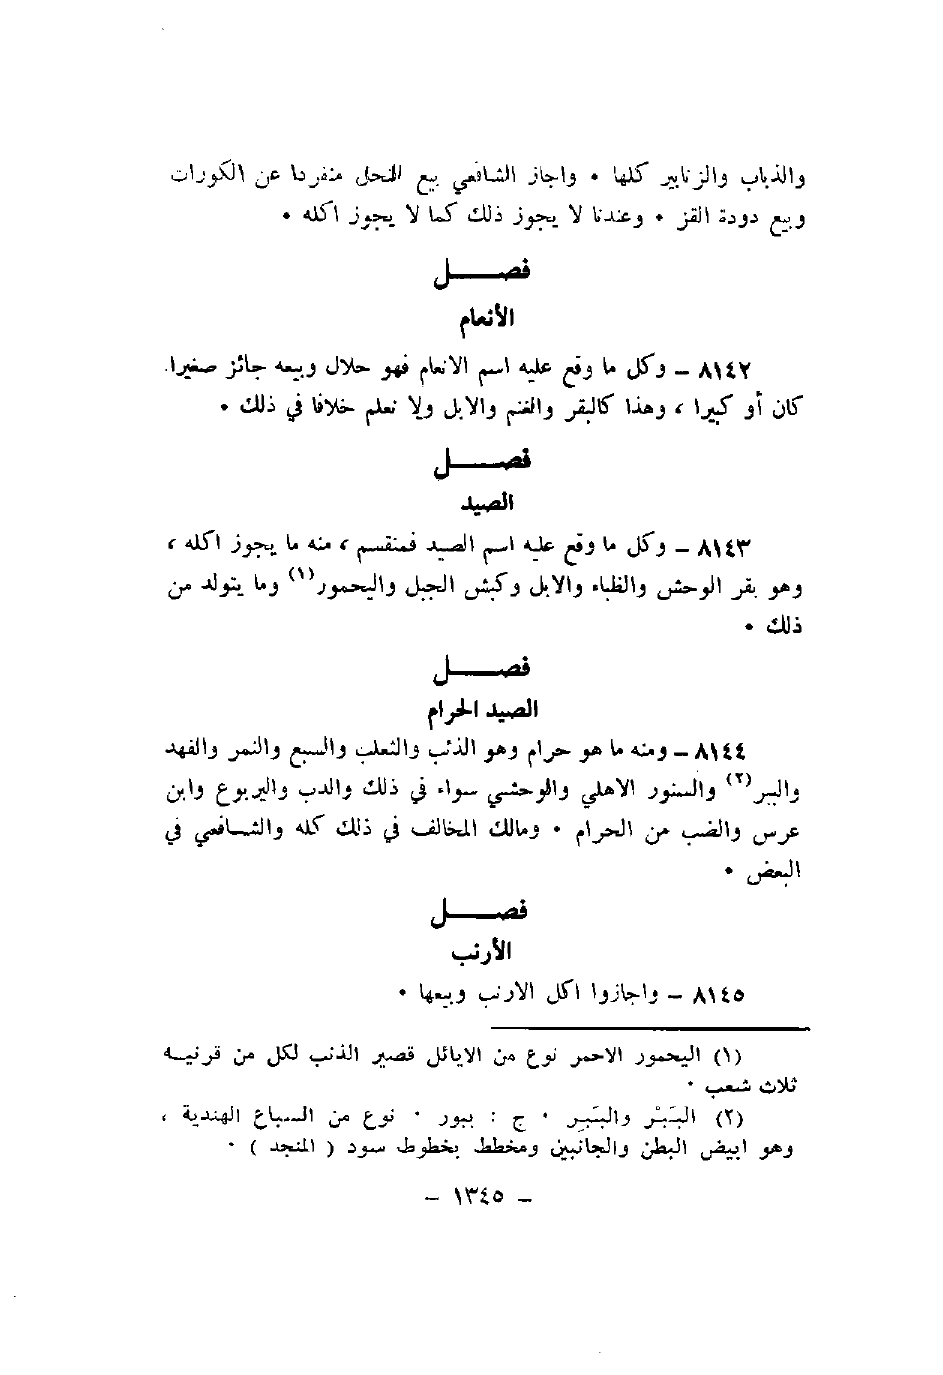 والذباب والزنابير كلها • واجاز الشافعي بيع النحل منفردا عن الكورات
وبيع دودة القز • وعندنا لا يجوز ذلك كما لا يجوز اكله •
فصـــــل
الأنعام
٨١٤٢ – وكل ما وقع عليه اسم الانعام فهو حلال وبيعه جائز صغيرا
كان أو كبيرا ، وهذا كالبقر والغنم والابل ولا نعلم خلافا في ذلك •
فصـــــل
الصيد
٨١٤٣ – وكل ما وقع عليه اسم الصيد فمنقسم ، منه ما يجوز اكله ،
وهو بقر الوحش والظباء والابل وكبش الجبل واليحمور(١) وما يتولد من
ذلك •
فصـــــل
الصيد الحرام
٨١٤٤ – ومنه ما هو حرام وهو الذئب والثعلب والسبع والنمر والفهد
والببر(٢) والسنور الاهلي والوحشي سواء في ذلك والدب واليربوع وابن
عرس والضب من الحرام • ومالك المخالف في ذلك كله والشـافعي في
البعض •
فصـــــل
الأرنب
٨١٤٥ – واجازوا اكل الارنب وبيعها •
(١) اليحمور الاحمر نوع من الايائل قصير الذنب لكل من قرنيـه
ثلاث شعب •
(٢) البَبْر والبَبِر • ج : ببور • نوع من السباع الهندية ،
وهو ابيض البطن والجانبين ومخطط بخطوط سود ( المنجد ) •
– ١٣٤٥ –